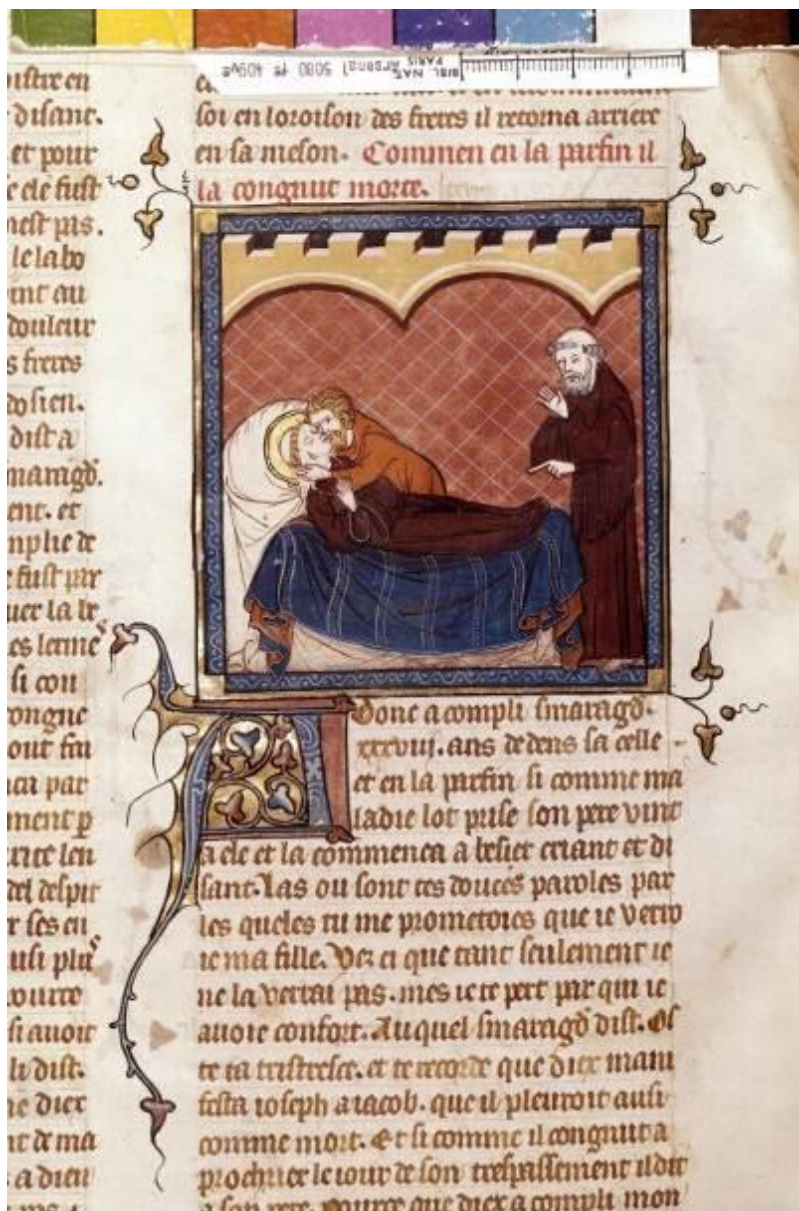 BIBL. NAT.
PARIS Arsenal 5080 fº 409vº
disant.
et pour
e ele fust
nest pas.
le labo
ent au
douleur
s freres
do sien.
dist a
maragd.
ent. et
mplie de
e fust par
uer la le
es lerme
si con
congne
out fai
nca par
ment p
del despit
r ses en
usi plus
si avoit
li dist.
ne diex
nt de ma
a dieu
soi en loroison des freres il retorna arriere
en sa meson. Commen en la parfin il
la congnut morte.
Adonc a compli smaragd.
xxxviii. ans dedens sa celle
et en la parfin si comme ma
ladie lot prise son pere vint
a ele et la commenca a besier criant et di
sant. Las ou sont tes douces paroles par
les queles tu me prometoies que ie verro
ie ma fille. Vez ci que tant seulement ie
ne la verrai pas. mes ie te pert par qui ie
avoie confort. Au quel smaragd dist. Os
te ta tristesce. et te recorde que diex mani
festa ioseph a iacob. que il pleuroit ausi
comme mort. Et si comme il congnut a
prochier le iour de son trespassement il dit
a son pere. pource que diex a compli mon